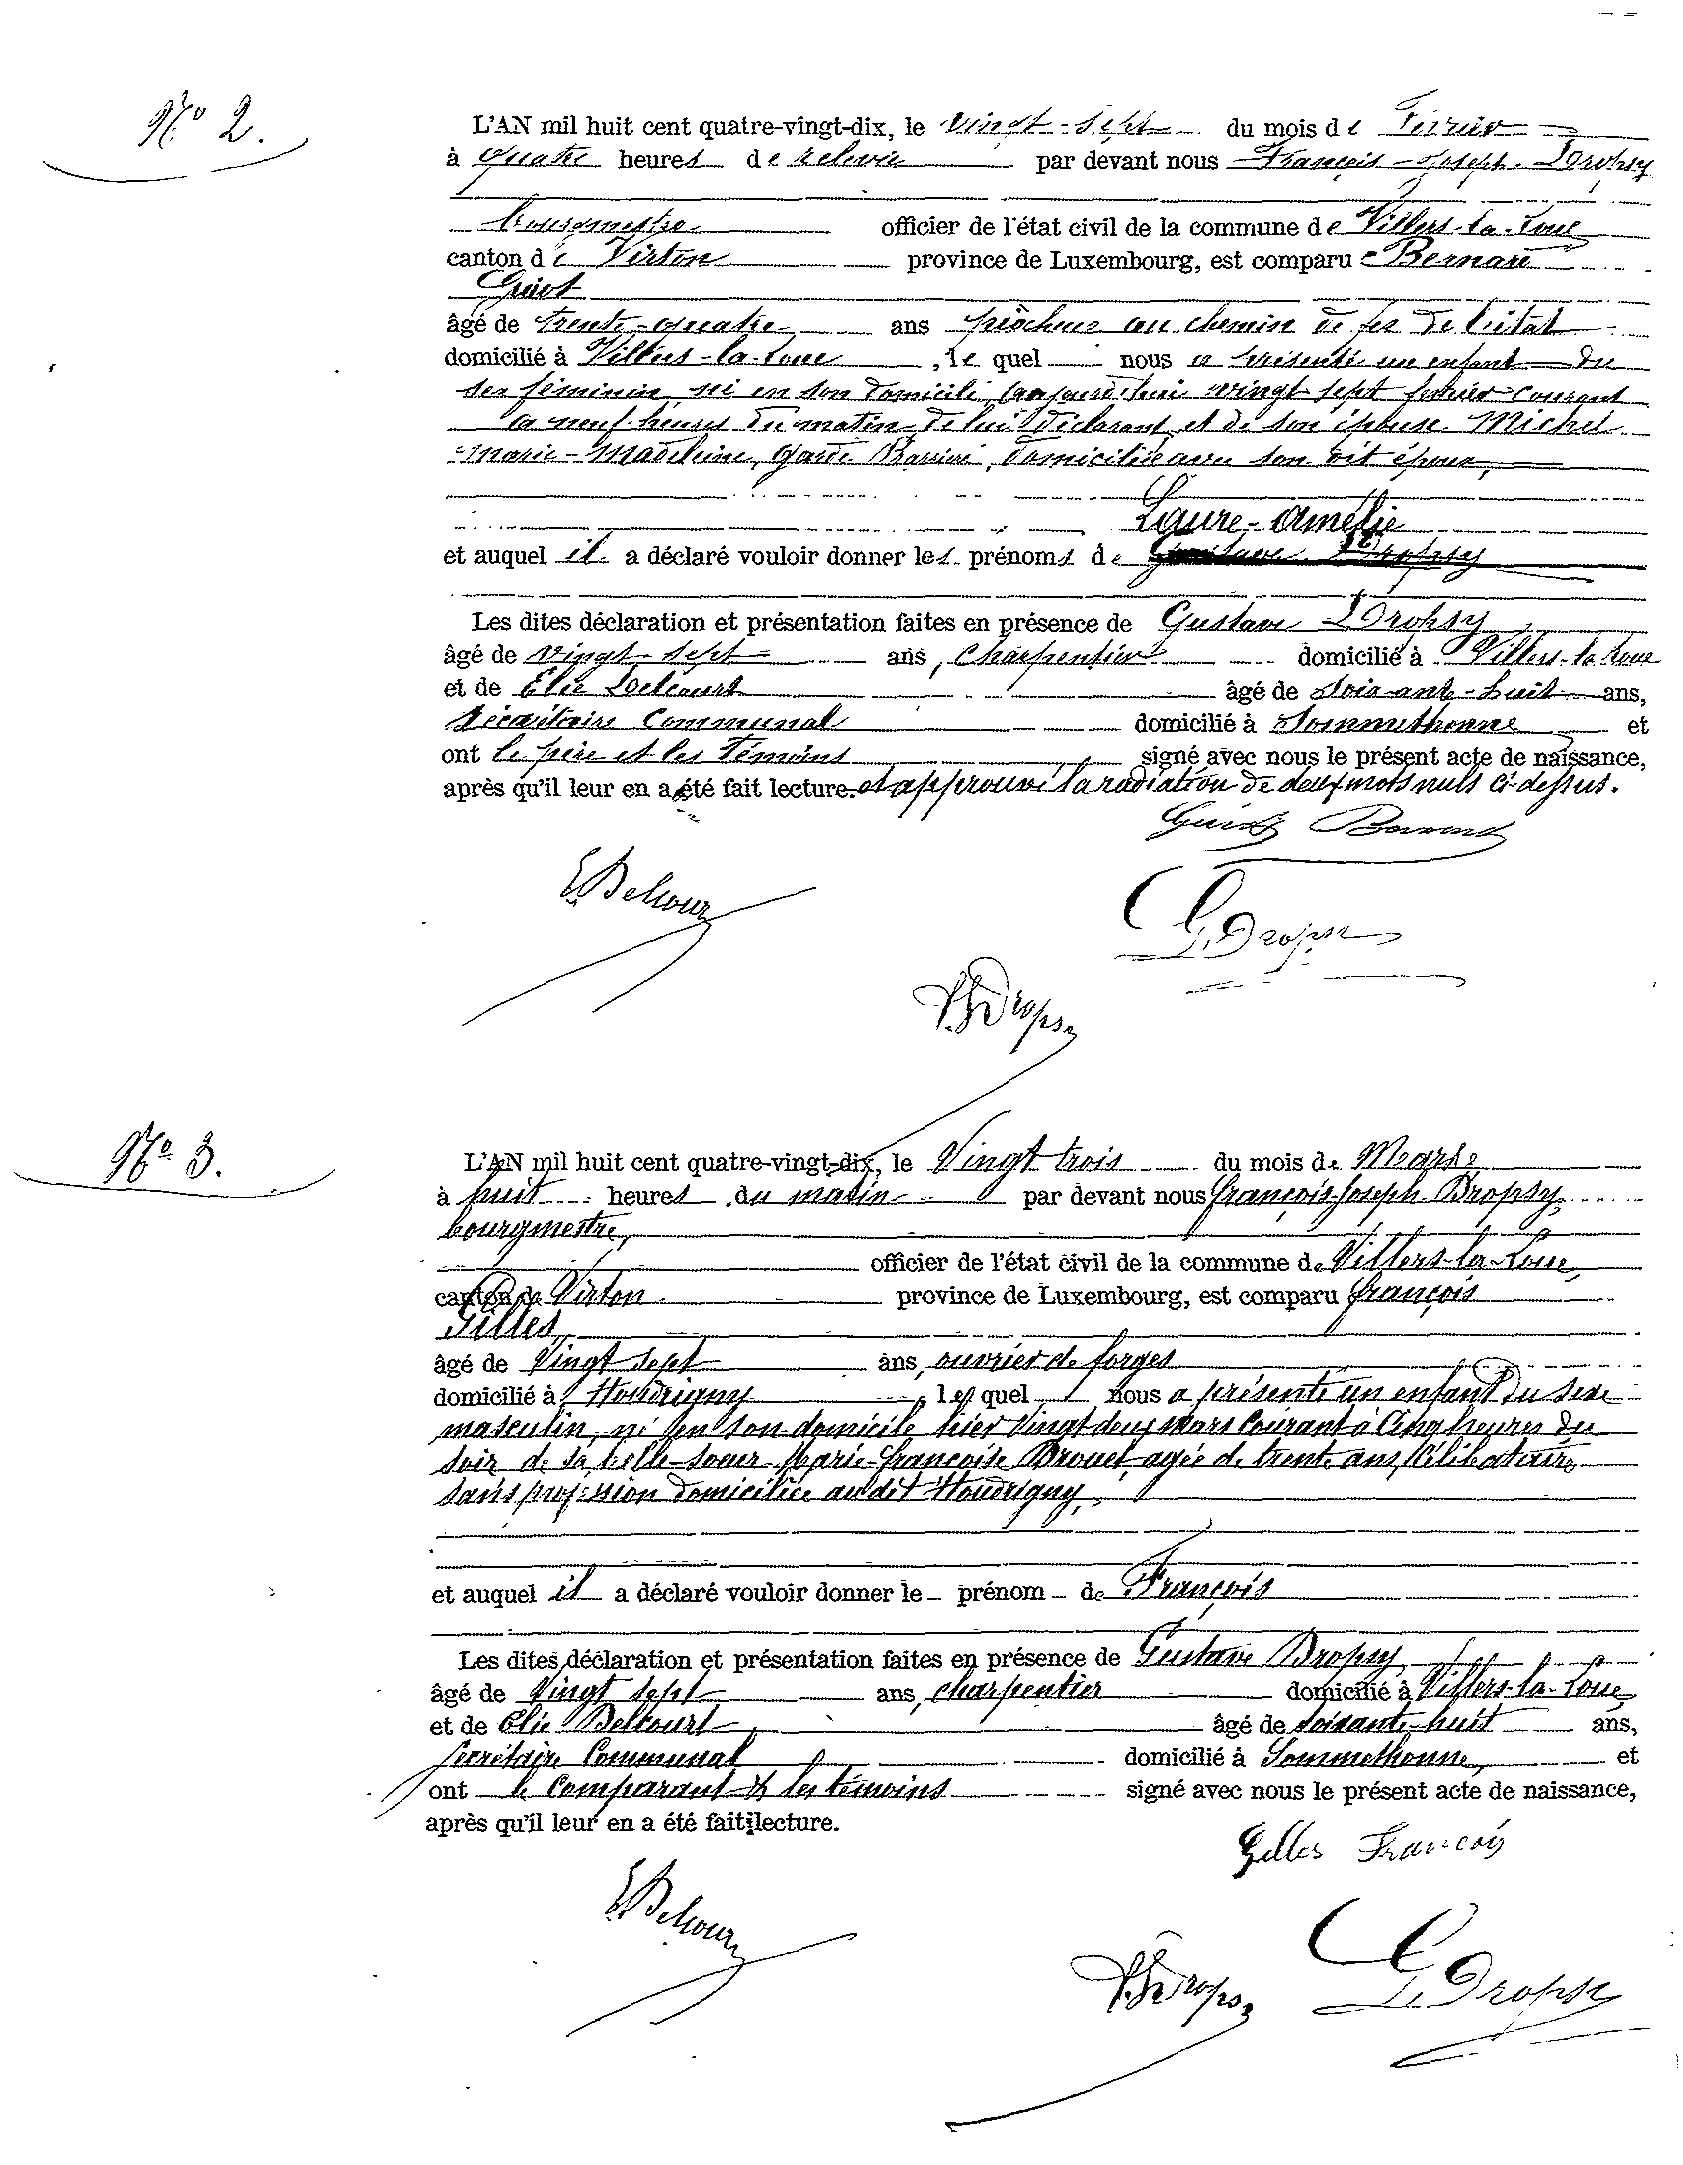 N° 2.
L'AN mil huit cent quatre-vingt-dix, le vingt-sept du mois de Février
à quatre heures de relevée par devant nous François-Joseph Dropsy
bourgmestre officier de l'état civil de la commune de Villers-la-Loue
canton de Virton province de Luxembourg, est comparu Bernard
âgé de trente-quatre ans piocheur au chemin de fer de l'état
domicilié à Villers-la-Loue, le quel nous a présenté un enfant du
sex féminin, né en son domicile aujourd'hui vingt sept février courant
à neuf heures du matin de lui déclarant et de son épouse Michel
Marie-Madeleine, Garde Barrière, domiciliée avec son dit époux,
Laure-Amélie
et auquel il a déclaré vouloir donner les prénoms de Gustave Dropsy
Les dites déclaration et présentation faites en présence de Gustave Dropsy
âgé de vingt-sept ans, charpentier domicilié à Villers-la-Loue
et de Elie Delcourt âgé de soixante-huit ans,
secrétaire communal domicilié à Sommethonne et
ont le père et les témoins signé avec nous le présent acte de naissance,
après qu'il leur en a été fait lecture. et approuvé la radiation de deux mots nuls ci-dessus.
E Delcourt
G. Dropsy
F.J. Dropsy
N° 3.
L'AN mil huit cent quatre-vingt-dix, le Vingt trois du mois de Mars
à huit heures du matin par devant nous François-Joseph Dropsy
bourgmestre,
officier de l'état civil de la commune de Villers-la-Loue,
canton de Virton province de Luxembourg, est comparu François
Gilles,
âgé de Vingt sept ans, ouvrier de forges
domicilié à Houdrigny, le quel nous a présenté un enfant du sexe
masculin, né en son domicile hier Vingt deux mars courant à Cinq heures du
soir de sa belle-soeur Marie-Françoise Brouet, agée de trente ans, Célibataire
sans profession domiciliée au dit Houdrigny,
et auquel il a déclaré vouloir donner le prénom de François
Les dites déclaration et présentation faites en présence de Gustave Dropsy
âgé de Vingt sept ans, charpentier domicilié à Villers-la-Loue
et de Elie Delcourt, âgé de soixante-huit ans,
secrétaire Communal domicilié à Sommethonne, et
ont le Comparant & les témoins signé avec nous le présent acte de naissance,
après qu'il leur en a été fait lecture.
Gilles François
E Delcourt
F.J. Dropsy
G. Dropsy